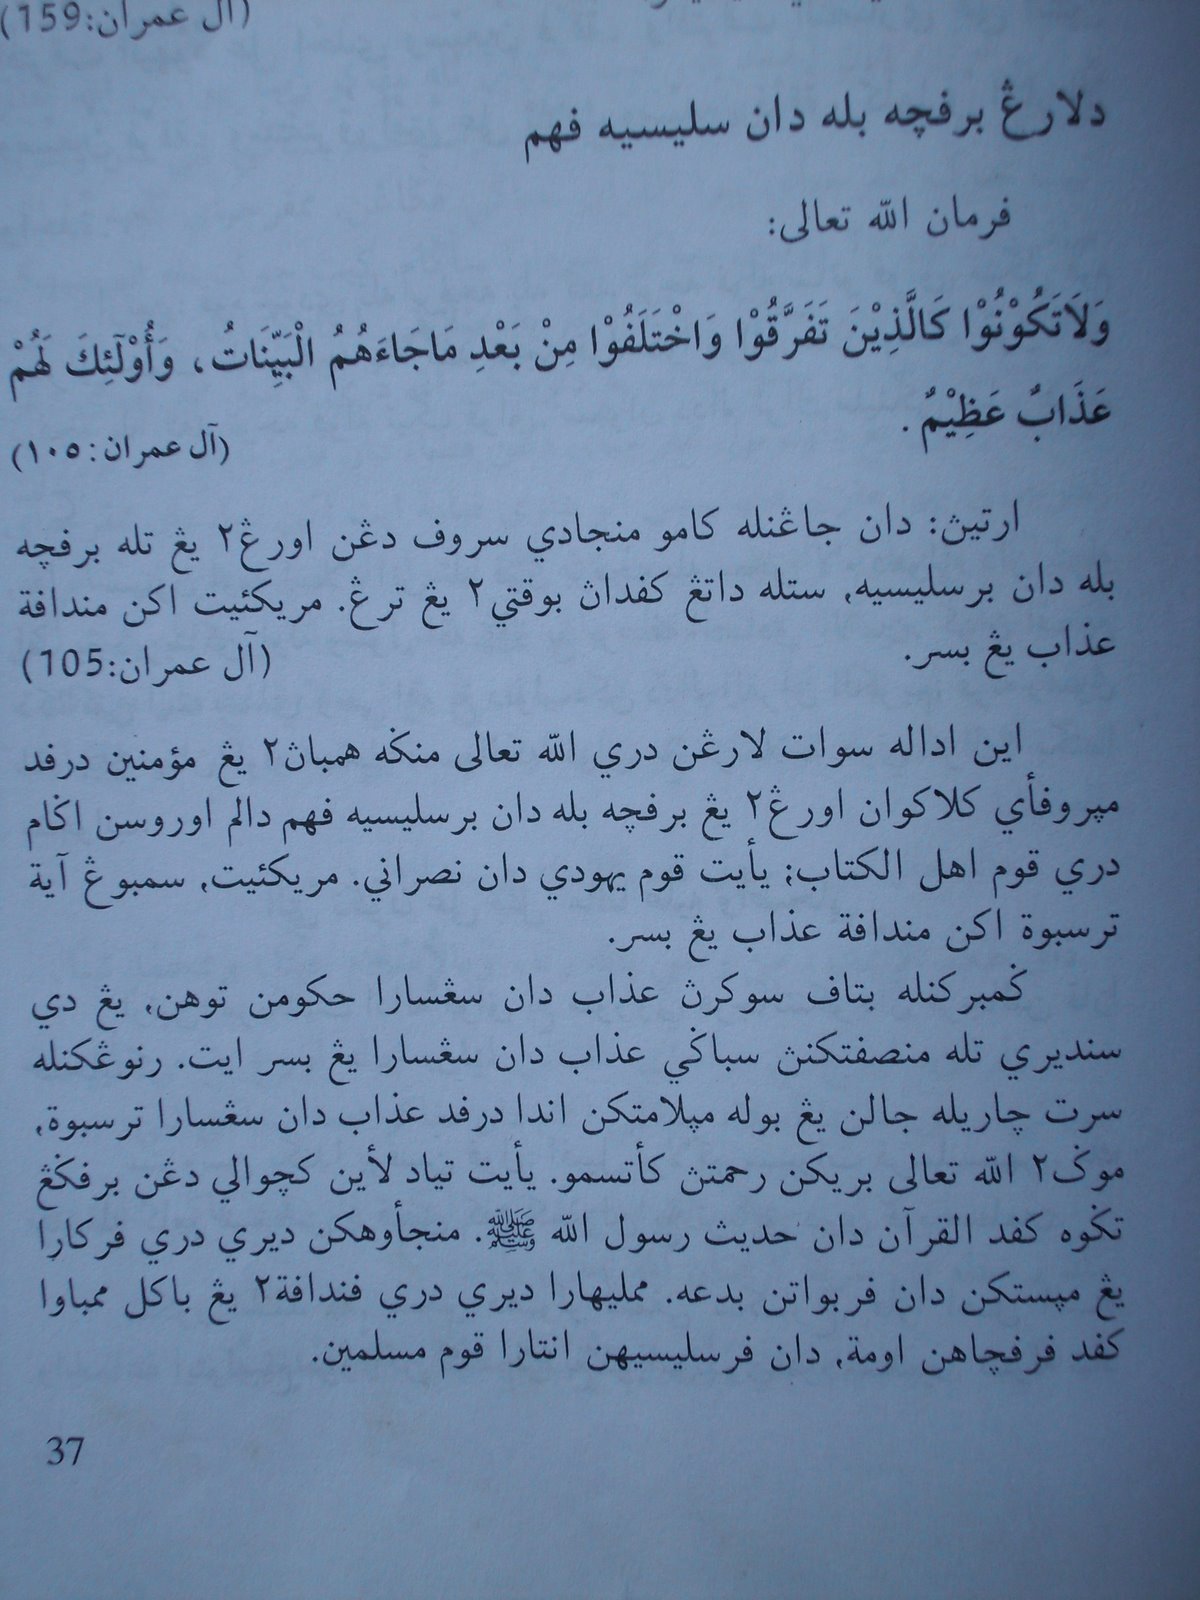 (آل عمران:159)
دلارڠ برفچه بله دان سليسيه فهم
فرمان الله تعالى:
وَلَاتَكُوْنُوْا كَالَّذِيْنَ تَفَرَّقُوْا وَاخْتَلَفُوْا مِنْ بَعْدِ مَاجَاءَهُمُ الْبَيِّنَاتُ، وَأُوْلَٓئِكَ لَهُمْ
عَذَابٌ عَظِيْمٌ .
(آل عمران: ١٠٥)
ارتيڽ: دان جاڠنله كامو منجادي سروف دڠن اورڠ٢ يڠ تله برفچه
بله دان برسليسيه, ستله داتڠ كفداڽ بوقتي٢ يڠ ترڠ. مريكئيت اكن مندافة
عذاب يڠ بسر.
(آل عمران:105)
اين اداله سوات لارڠن دري الله تعالى منݢه همباڽ٢ يڠ مؤمنين درفد
مڽروفأي كلاكوان اورڠ٢ يڠ برفچه بله دان برسليسيه فهم دالم اوروسن اݢام
دري قوم اهل الكتاب; يأيت قوم يهودي دان نصراني. مريكئيت, سمبوڠ آية
ترسبوة اكن مندافة عذاب يڠ بسر.
ݢمبركنله بتاف سوكرڽ عذاب دان سڠسارا حكومن توهن, يڠ دي
سنديري تله منصفتكنڽ سباݢي عذاب دان سڠسارا يڠ بسر ايت. رنوڠكنله
سرت چاريله جالن يڠ بوله مڽلامتكن اندا درفد عذاب دان سڠسارا ترسبوة,
موݢ٢ الله تعالى بريكن رحمتڽ كأتسمو. يأيت تياد لأين كچوالي دڠن برفݢڠ
تݢوه كفد القرآن دان حديث رسول الله ﷺ. منجأوهكن ديري دري فركارا
يڠ مڽستكن دان فربواتن بدعه. ممليهارا ديري دري فندافة٢ يڠ باكل ممباوا
كفد فرفچاهن اومة, دان فرسليسيهن انتارا قوم مسلمين.
37